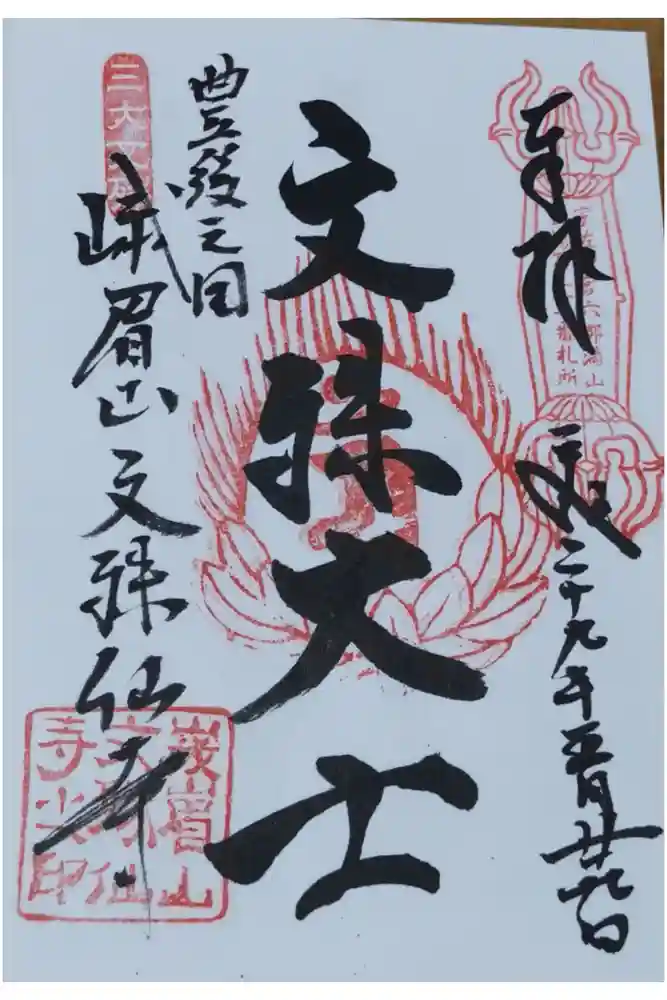 奉拝
二十九年五月廿九日
文殊大士
豊後之国
峨眉山文殊仙寺
三大文殊
六郷満山
番札所
峨眉山
文殊仙
寺出印